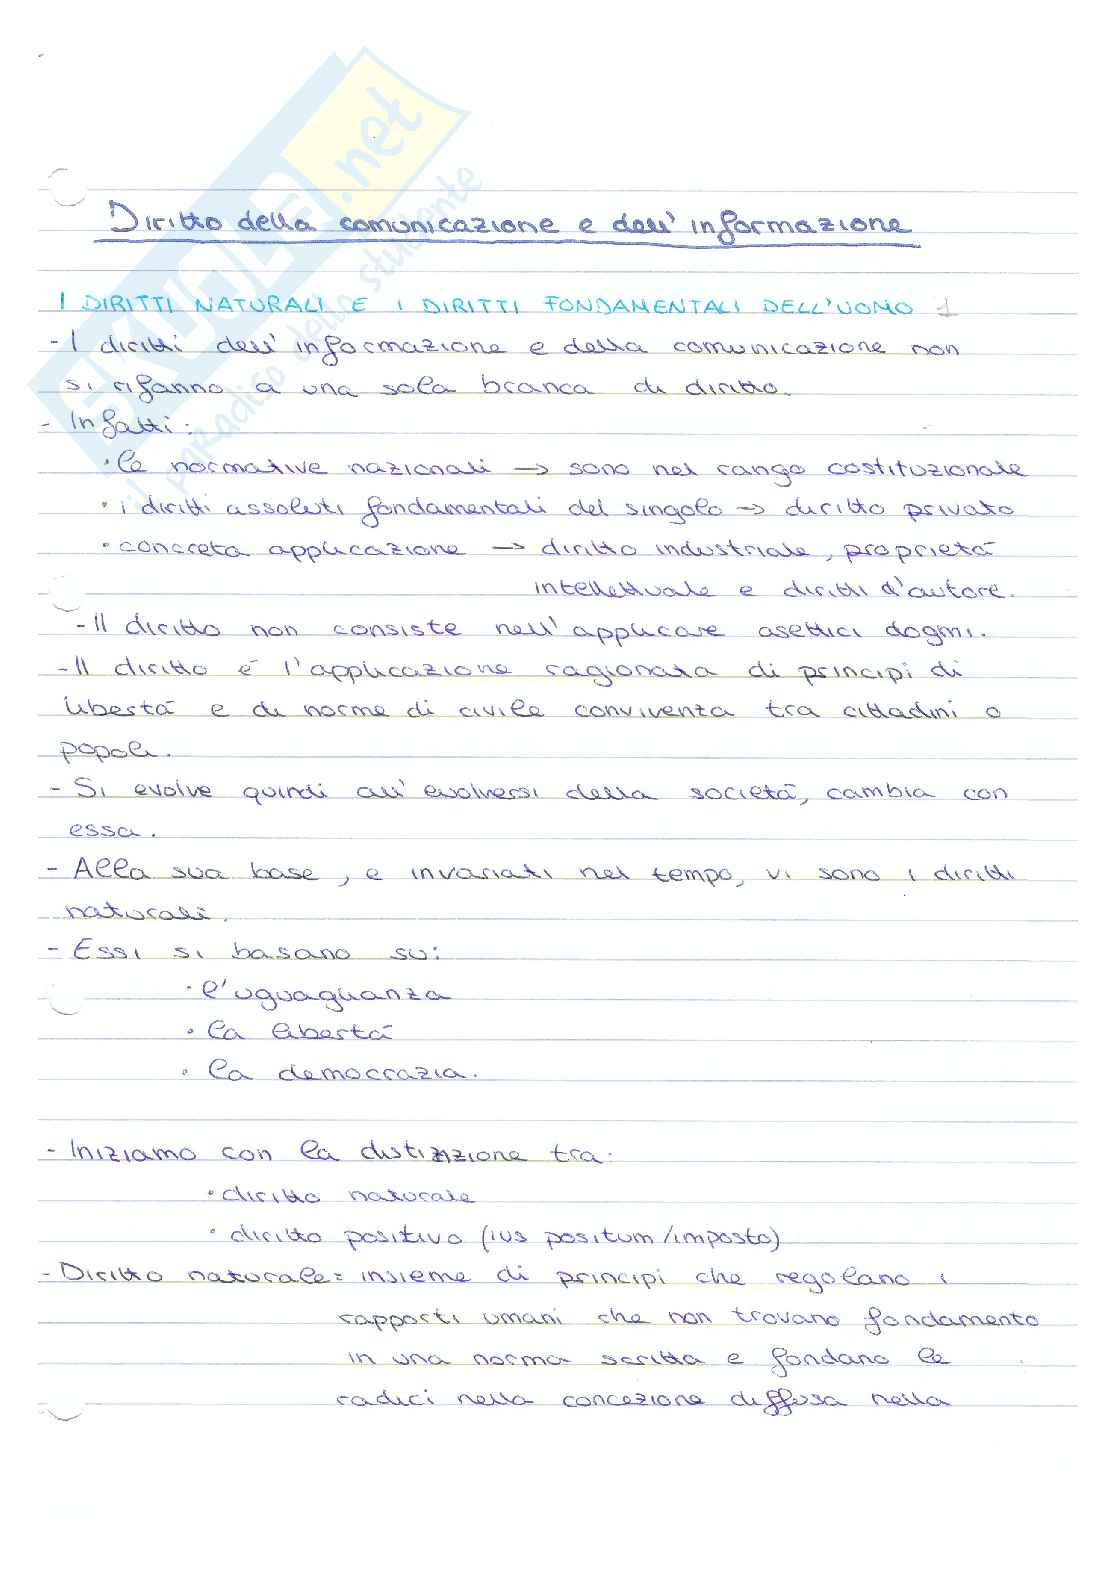 SKUOLA.net
il paradiso dello studente
Diritto della comunicazione e dell'informazione
I DIRITTI NATURALI E I DIRITTI FONDAMENTALI DELL'UOMO 1
- I diritti dell'informazione e della comunicazione non
si rifanno a una sola branca di diritto.
- Infatti:
• le normative nazionali → sono nel rango costituzionale
• i diritti assoluti fondamentali del singolo → diritto privato
• concreta applicazione → diritto industriale, proprietà
intellettuale e diritti d'autore.
- Il diritto non consiste nell'applicare asettici dogmi.
- Il diritto è l'applicazione ragionata di principi di
libertà e di norme di civile conviventa tra cittadini o
popoli.
- Si evolve quindi all'evolversi della società, cambia con
essa.
- Alla sua base, e invariati nel tempo, vi sono i diritti
naturali.
- Essi si basano su:
• l'uguaglianza
• la libertà
• la democrazia.
- Iniziamo con la distinzione tra:
• diritto naturale
• diritto positivo (ius positum/imposto)
- Diritto naturale = insieme di principi che regolano i
rapporti umani che non trovano fondamento
in una norma scritta e fondano le
radici nella concezione diffusa nella